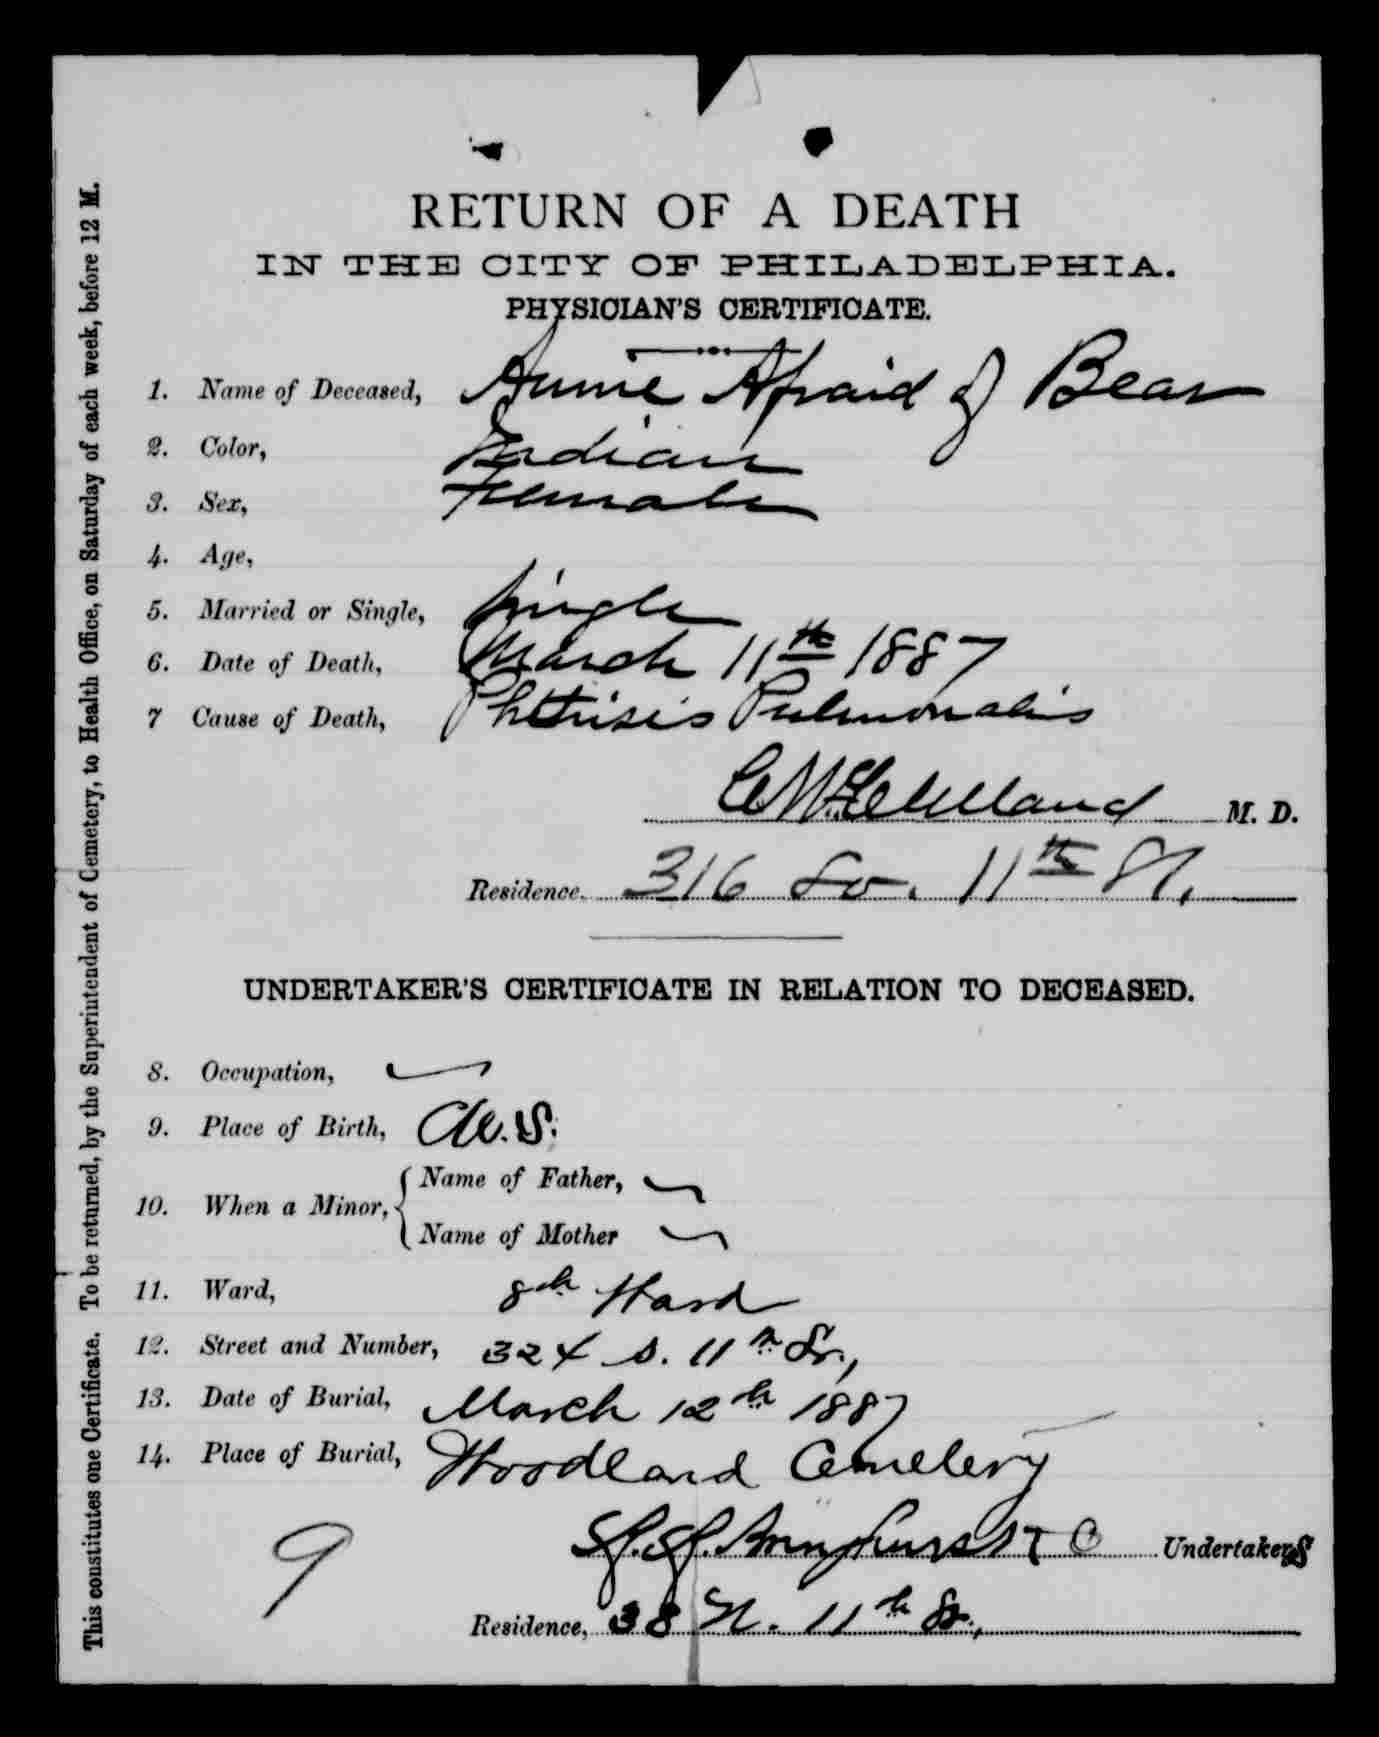 RETURN OF A DEATH
IN THE CITY OF PHILADELPHIA.
PHYSICIAN'S CERTIFICATE.
1. Name of Deceased, Annie Afraid of Bear
2. Color, Indian
3. Sex, Female
4. Age,
5. Married or Single, Single
6. Date of Death, March 11th 1887
7 Cause of Death, Phthisis Pulmonalis
McClelland M. D.
Residence. 316 So. 11th St.
UNDERTAKER'S CERTIFICATE IN RELATION TO DECEASED.
8. Occupation,
9. Place of Birth, U.S.
10. When a Minor, Name of Father,
Name of Mother
11. Ward, 8th Ward
12. Street and Number, 324 S. 11th St.,
13. Date of Burial, March 12th 1887
14. Place of Burial, Woodland Cemetery
Undertakers
Residence, 38 N. 11th St.,
9
This constitutes one Certificate. To be returned, by the Superintendent of Cemetery, to Health Office, on Saturday of each week, before 12 M.